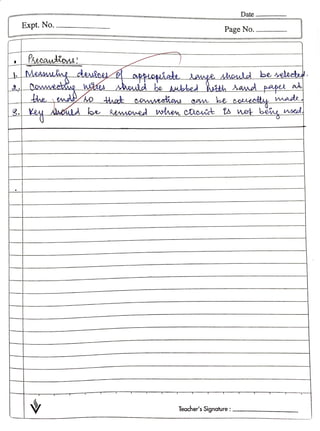 Date
Expt. No.
Page No.
• Precautions:
1. Measuring devices of appropriate range should be selected.
2. Connecting wires should be rubbed with sand paper at
the ends so that connections can be correctly made.
3. Key should be removed when circuit is not being used.
Teacher's Signature :